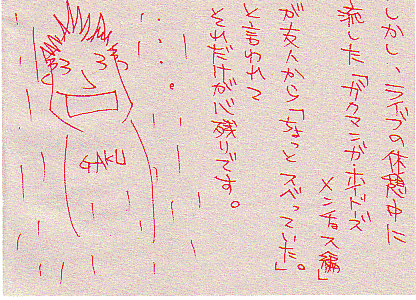 しかし、ライブの休憩中に
流した「ガクマンガ・ボイドーズ
メンチョス編」
が友人から「ちょっとスベっていた。」
と言われて
それだけが心残りです。
GAKU